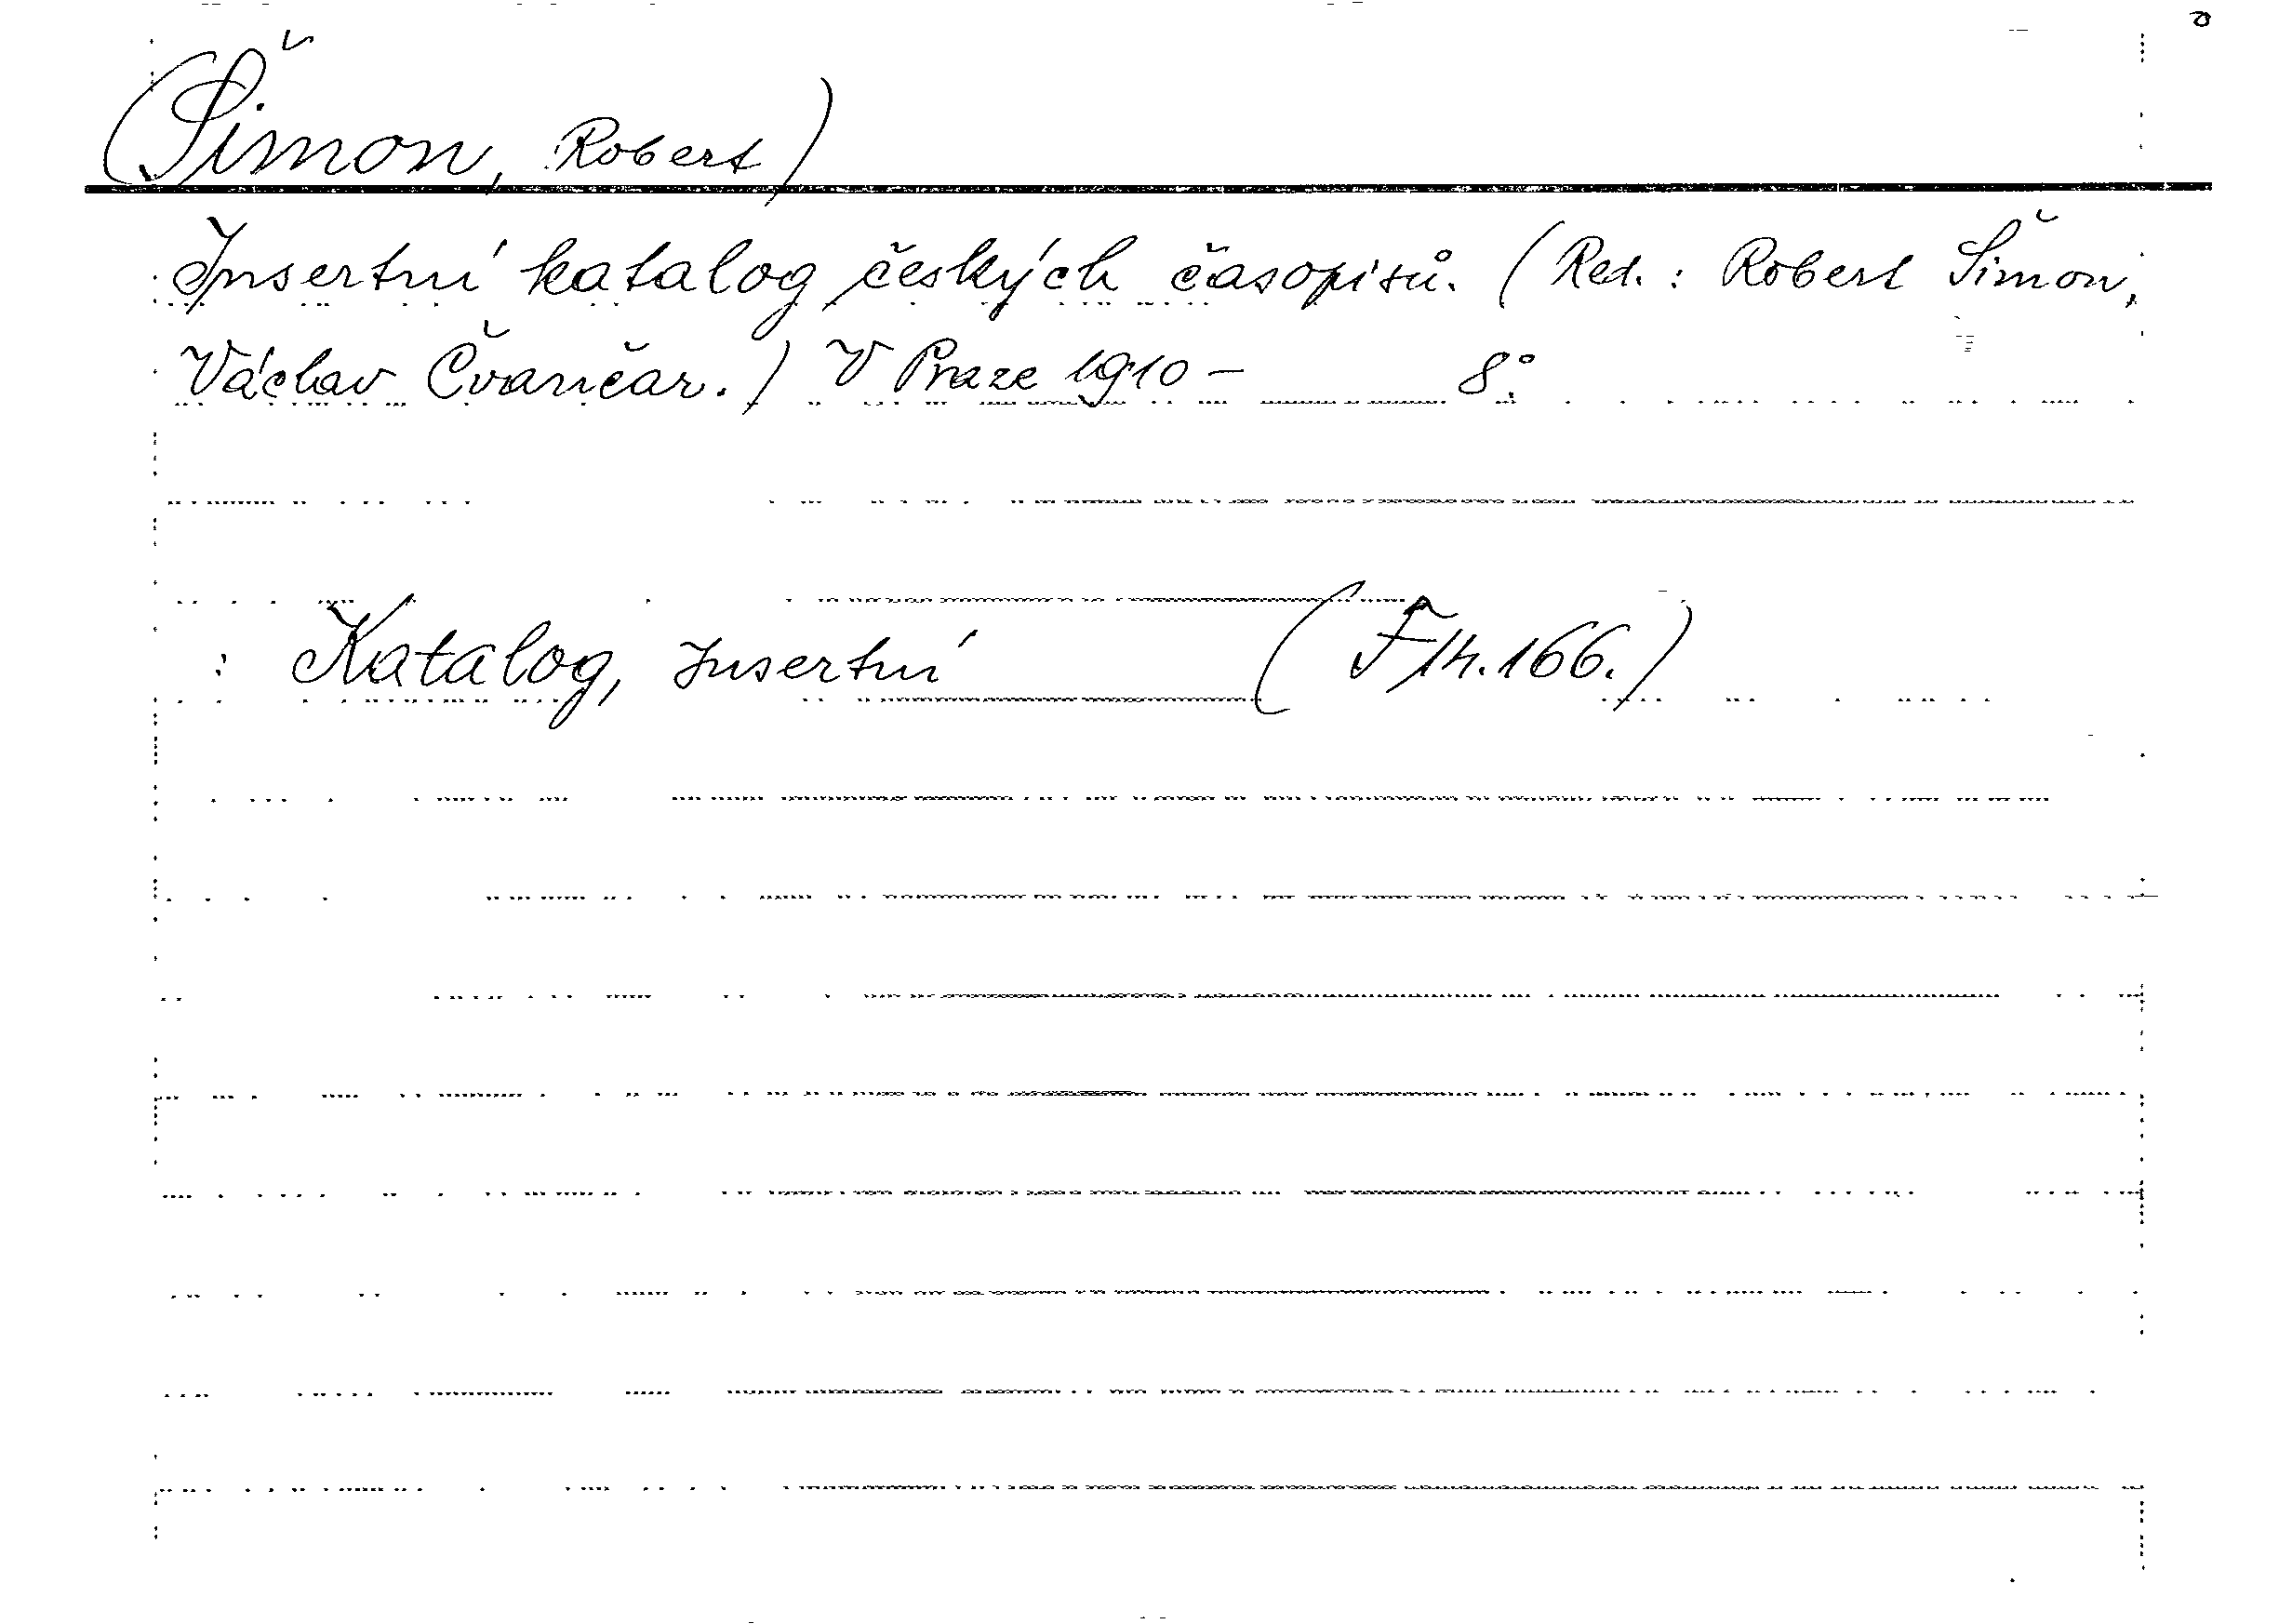 (Šimon, Robert)
Insertní katalog českých časopisů. (Red.: Robert Šimon,
Václav Čvančar.) V Praze 1910 – 8°.
: Katalog, Insertní